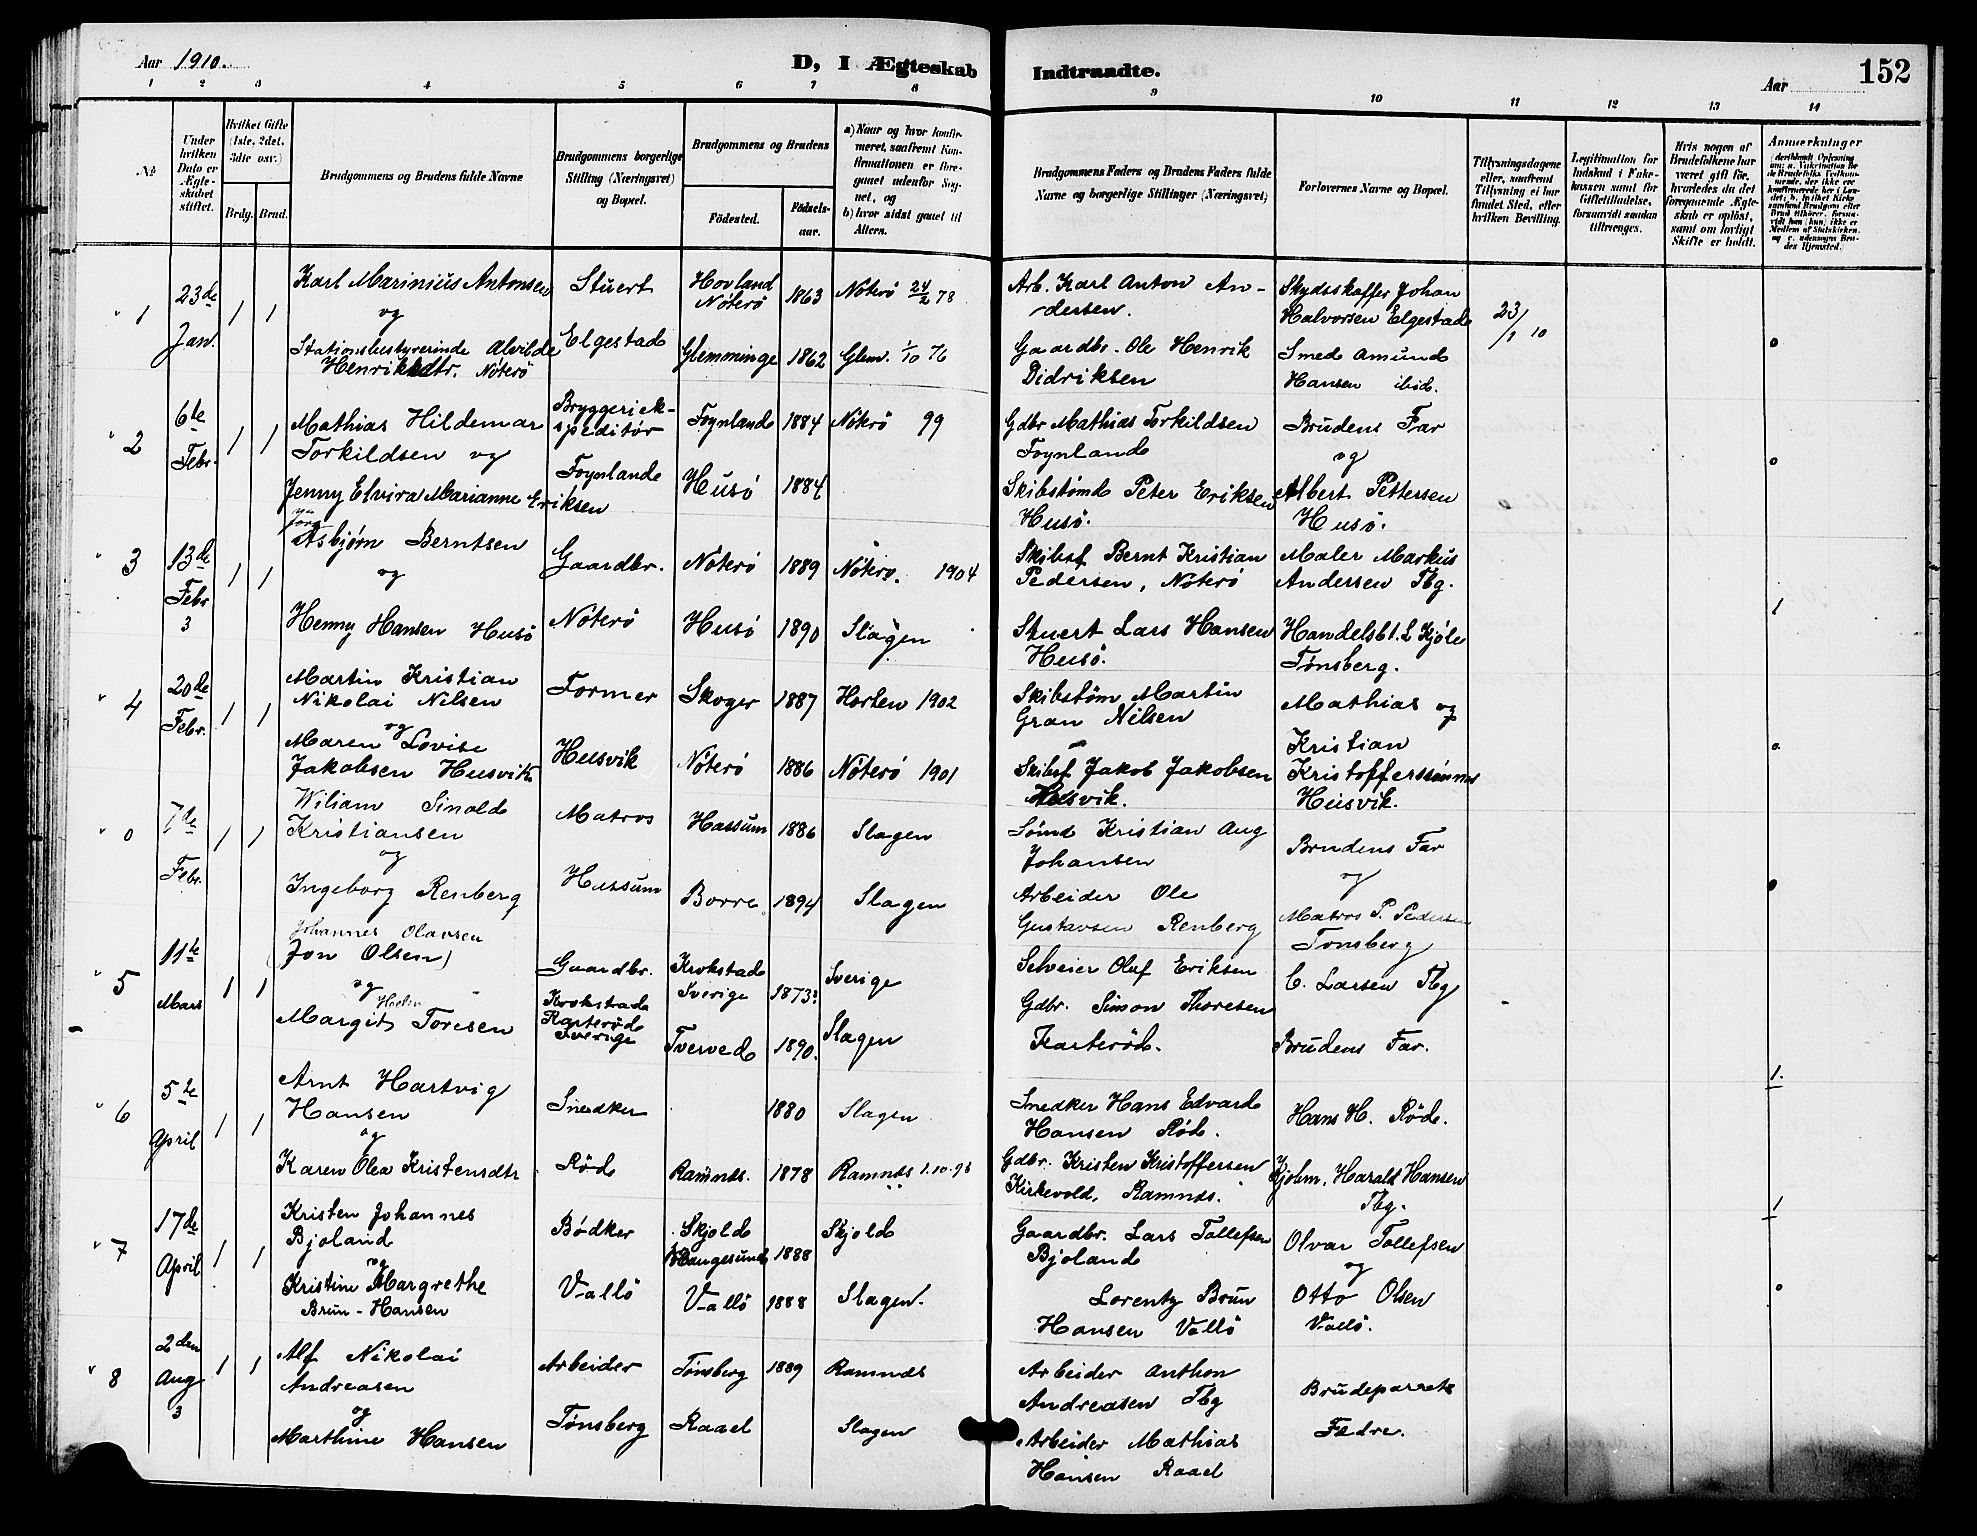 Aar 1910.
D, I Ægteskab
Indtraadte.
Aar
152
1 2 3 4 5 6 7 8 9 10 11 12 13 14
No
Under hvilken Dato er Ægteskabet stiftet.
Hvilket Gifte (1ste, 2det, 3die osv.)
Brdg. Brud.
Brudgommens og Brudens fulde Navne
Brudgommens borgerlige Stilling (Næringsvei) og Bopæl.
Brudgommens og Brudens
Födested.
Födselsaar.
a) Naar og hvor konfirmeret, saafremt Konfirmationen er foregaaet udenfor Sognet, og
b) hvor sidst gaaet til Alters.
Brudgommens Faders og Brudens Faders fulde Navne og borgerlige Stillinger (Næringsvei)
Forlovernes Navne og Bopæl.
Tillysningsdagene eller, saafremt Tillysning ei har fundet Sted, efter hvilken Bevilling.
Legitimation for Indskud i Enkekassen samt for Giftetilladelse, forsaavidt saadan tiltrænges.
Hvis nogen af Brudefolkene har været gift før, hvorledes da det foregaaende Ægteskab er oplöst, samt om lovligt Skifte er holdt.
Anmærkninger
1
23de Jan.
1 1
Karl Marinius Antonsen
og
Stationsbestyrerinde Alvilde
Henriksdtr. Nöterö
Stuert
Elgestad
Hovland
Nöterö
1863
Nöterö 24/2 78
Glemminge
1862
Glem. 1/10 76
Arb. Karl Anton An-
dersen.
Gaardbr. Ole Henrik
Didriksen
Skydsskaffer Johan
Halvorsen Elgestad
Smed Amund
Hansen ibid.
23/1 10
0
2
6te Febr.
1 1
Mathias Hildemar
Torkildsen og
Jenny Elvira Marianne Eriksen
Bryggeriek-
speditør
Föynland
Föynland
1884
Nöterö 99
Husö
1884
Gdbr Mathias Torkildsen
Föynland
Skibstømd Peter Eriksen
Husö.
Brudens Far
og
Albert Pettersen
Husö.
0
3
13de Febr
3
1 1
Asbjørn Berntsen
og
Henny Hansen Husö
Gaardbr.
Nöterö
Nöterö
1889
Nöterö. 1904
Husö
1890
Slagen
Skibsf Bernt Kristian
Pedersen, Nöterö
Stuert Lars Hansen
Husö.
Maler Markus
Andersen Tbg.
Handelsbt. L Kjöle
Tønsberg.
1
4
20de Febr.
1 1
Martin Kristian
Nikolai Nilsen
og
Maren Lovise
Jakobsen Husvik
Former
Husvik
Skoger
1887
Horten 1902
Nöterö
1886
Nöterö 1901
Skibstøm Martin
Gran Nilsen
Skibsf Jakob Jakobsen
Husvik.
Mathias og
Kristian
Kristofferssønner
Husvik.
0
0
7de Febr.
1 1
Wiliam Sinald
Kristiansen
og
Ingeborg Renberg
Matros
Hussum
Hassum
1886
Slagen
Borre
1894
Slagen
Sømd Kristian Aug
Johansen
Arbeider Ole
Gustavsen Renberg
Brudens Far
og
Matros P. Pedersen
Tønsberg
0
5
11te Mars
1 1
Johannes Olavsen
(Jon Olsen)
og
Margit Toresen
Gaardbr.
Krokstad
Karteröd
Sverige
Krokstad
Sverige
1873
Sverige
Tverved
1890.
Slagen
Selveier Oluf Eriksen
Gdbr. Simon Thoresen
Karteröd.
C. Larsen Tbg
Brudens Far.
1.
6
5te April
1 1
Arnt Hartvig
Hansen
og
Karen Olea Kristensdtr
Snedker
Röd
1880
Slagen
Ramnes.
1878
Ramnes 1.10.93
Snedker Hans Edvard
Hansen Röd.
Gdbr. Kristen Kristoffersen
Kirkevold, Ramnes.
Hans H. Röd.
Kjøbm. Harald Hansen
Tbg.
1
7
17de April
1 1
Kristen Johannes
Bjoland
og
Kristine Margrethe
Brun-Hansen
Bødker
Vallö
Skjold
Haugesund
1888
Skjold
Vallö
1888
Slagen.
Gaardbr. Lars Tollefsen
Bjoland
Lorentz Brun
Hansen Vallö
Olvar Tollefsen
og
Otto Olsen
Vallö.
0
8
2den Aug
3
1 1
Alf Nikolai
Andreasen
og
Marthine Hansen
Arbeider
Tønsberg
Tønsberg
1889
Ramnes
Raael
Slagen
Arbeider Anthon
Andreasen Tbg
Arbeider Mathias
Hansen Raael
Brudeparrets
Fedre.